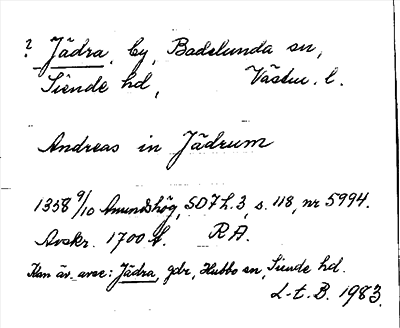 ? Jädra, by, Badelunda sn,
Siende hd, Västm. l.
Andreas in Jädrum
1358 9/10 Anundshög, SD 7 h. 3, s. 118, nr 5994.
Avskr. 1700 t. RA.
Kan äv. avse: Jädra, gdr, Hubbo sn, Siende hd.
L-t. B. 1983.